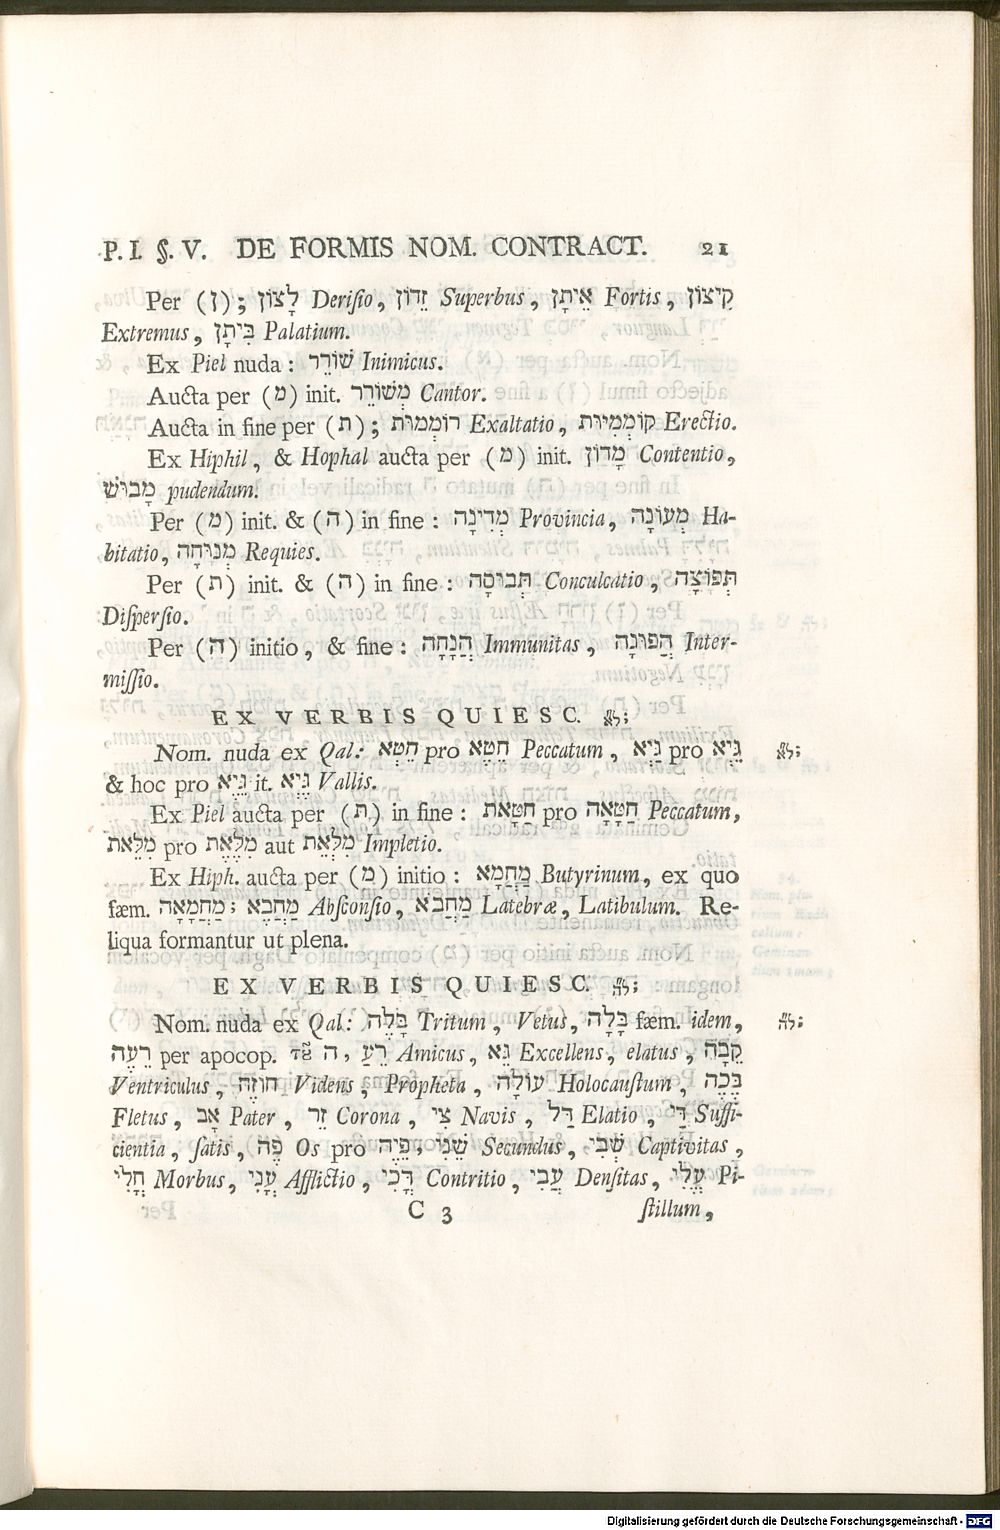 P. I. §. V. DE FORMIS NOM. CONTRACT. 21
Per (ן); לָצוֹן Derisio, זֵדוֹן Superbus, אֵיתָן Fortis, קִיצוֹן
Extremus, בִּיתָן Palatium.
Ex Piel nuda: שׁוֹרֵר Inimicus.
Aucta per (מ) init. מְשׁוֹרֵר Cantor.
Aucta in fine per (ת); רוֹמְמוּת Exaltatio, קוֹמְמִיּוּת Erectio.
Ex Hiphil, & Hophal aucta per (מ) init. מָדוֹן Contentio,
מָבוּשׁ pudendum.
Per (מ) init. & (ה) in fine: מְדִינָה Provincia, מְעוֹנָה Ha-
bitatio, מְנוּחָה Requies.
Per (ת) init. & (ה) in fine: תְּבוּסָה Conculcatio, תְּפוֹצָה
Dispersio.
Per (ה) initio, & fine: הֲנָחָה Immunitas, הֲפוּגָה Inter-
missio.
EX VERBIS QUIESC. לא;
Nom. nuda ex Qal: חֵטְא pro חֵטֶא Peccatum, גַּיְא pro גֵּיְא לא;
& hoc pro גֵּיֶא it. גַּיְא Vallis.
Ex Piel aucta per (ת) in fine: חַטָּאת pro חַטָּאָה Peccatum,
מִלֵּאת pro מִלֶּאֶת aut מִלְּאֵת Impletio.
Ex Hiph. aucta per (מ) initio: מַחֲמָא Butyrinum, ex quo
fæm. מַחֲמָאָה; מַחֲבֵא Absconsio, מַחֲבֹא Latebræ, Latibulum. Re-
liqua formantur ut plena.
EX VERBIS QUIESC. לה;
Nom. nuda ex Qal: בָּלֶה Tritum, Vetus, בָּלָה fæm. idem, לה;
רֵעֶה per apocop. ה, רֵעַ Amicus, גֵּא Excellens, elatus, קֵבָה
Ventriculus, חוֹזֶה Videns, Propheta, עוֹלָה Holocaustum, בֶּכֶה
Fletus, אָב Pater, זֵר Corona, צִי Navis, דַּל Elatio, דַּי Suffi-
cientia, satis, פֶּה Os pro פֵּיֶה, שֵׁנִי Secundus, שְׁבִי Captivitas,
חֳלִי Morbus, עֳנִי Afflictio, דֳּכִי Contritio, עֲבִי Densitas, עֱלִי Pi-
C 3 stillum,
Digitalisierung gefördert durch die Deutsche Forschungsgemeinschaft - DFG